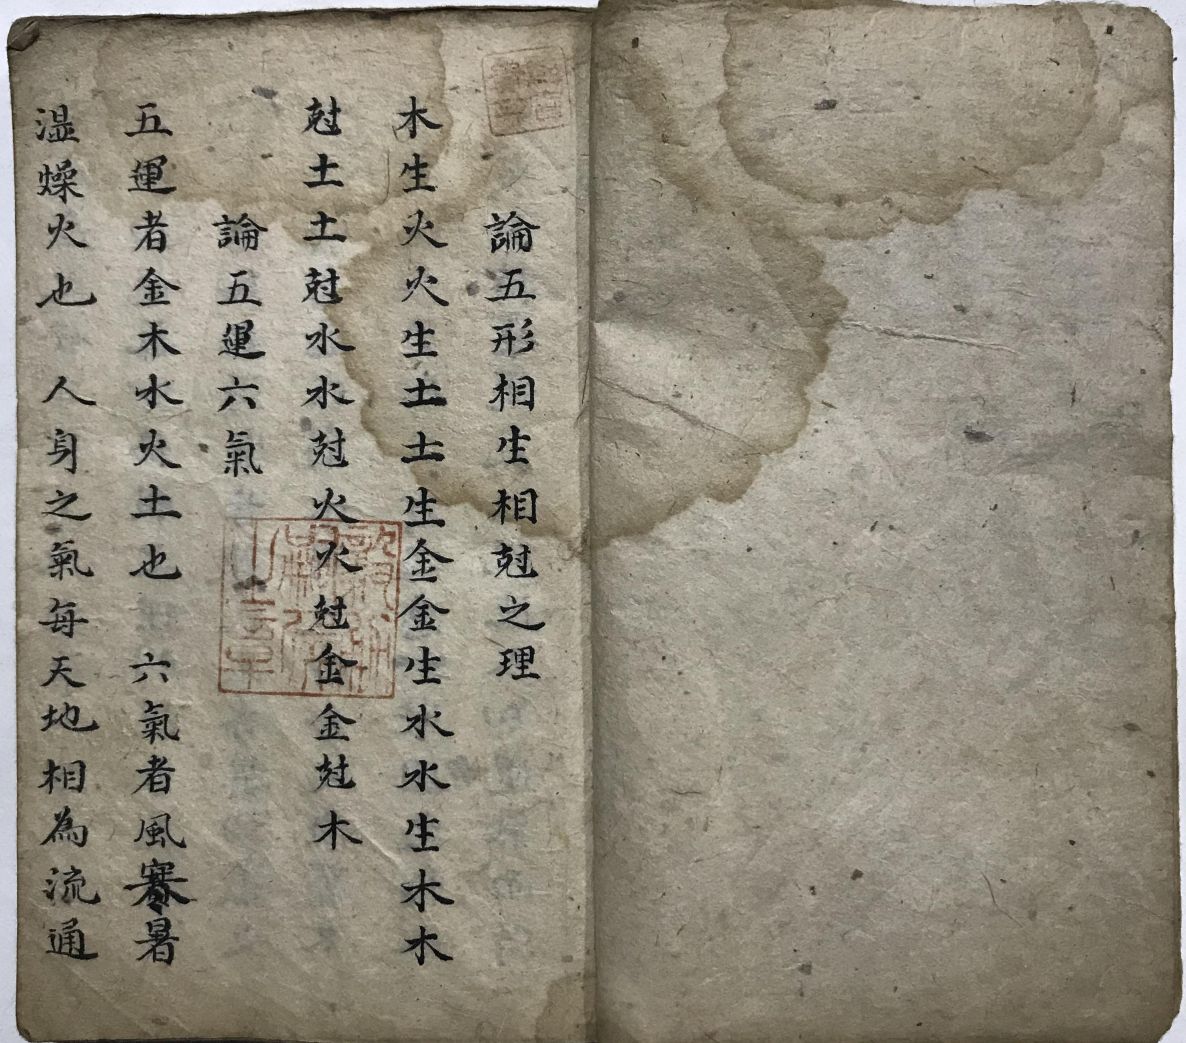 論五形相生相尅之理
木生火火生土土生金金生水水生木木
尅土土尅水水尅火火尅金金尅木
論五運六氣
五運者金木水火土也 六氣者風寒暑
温燥火也 人身之氣每天地相為流通